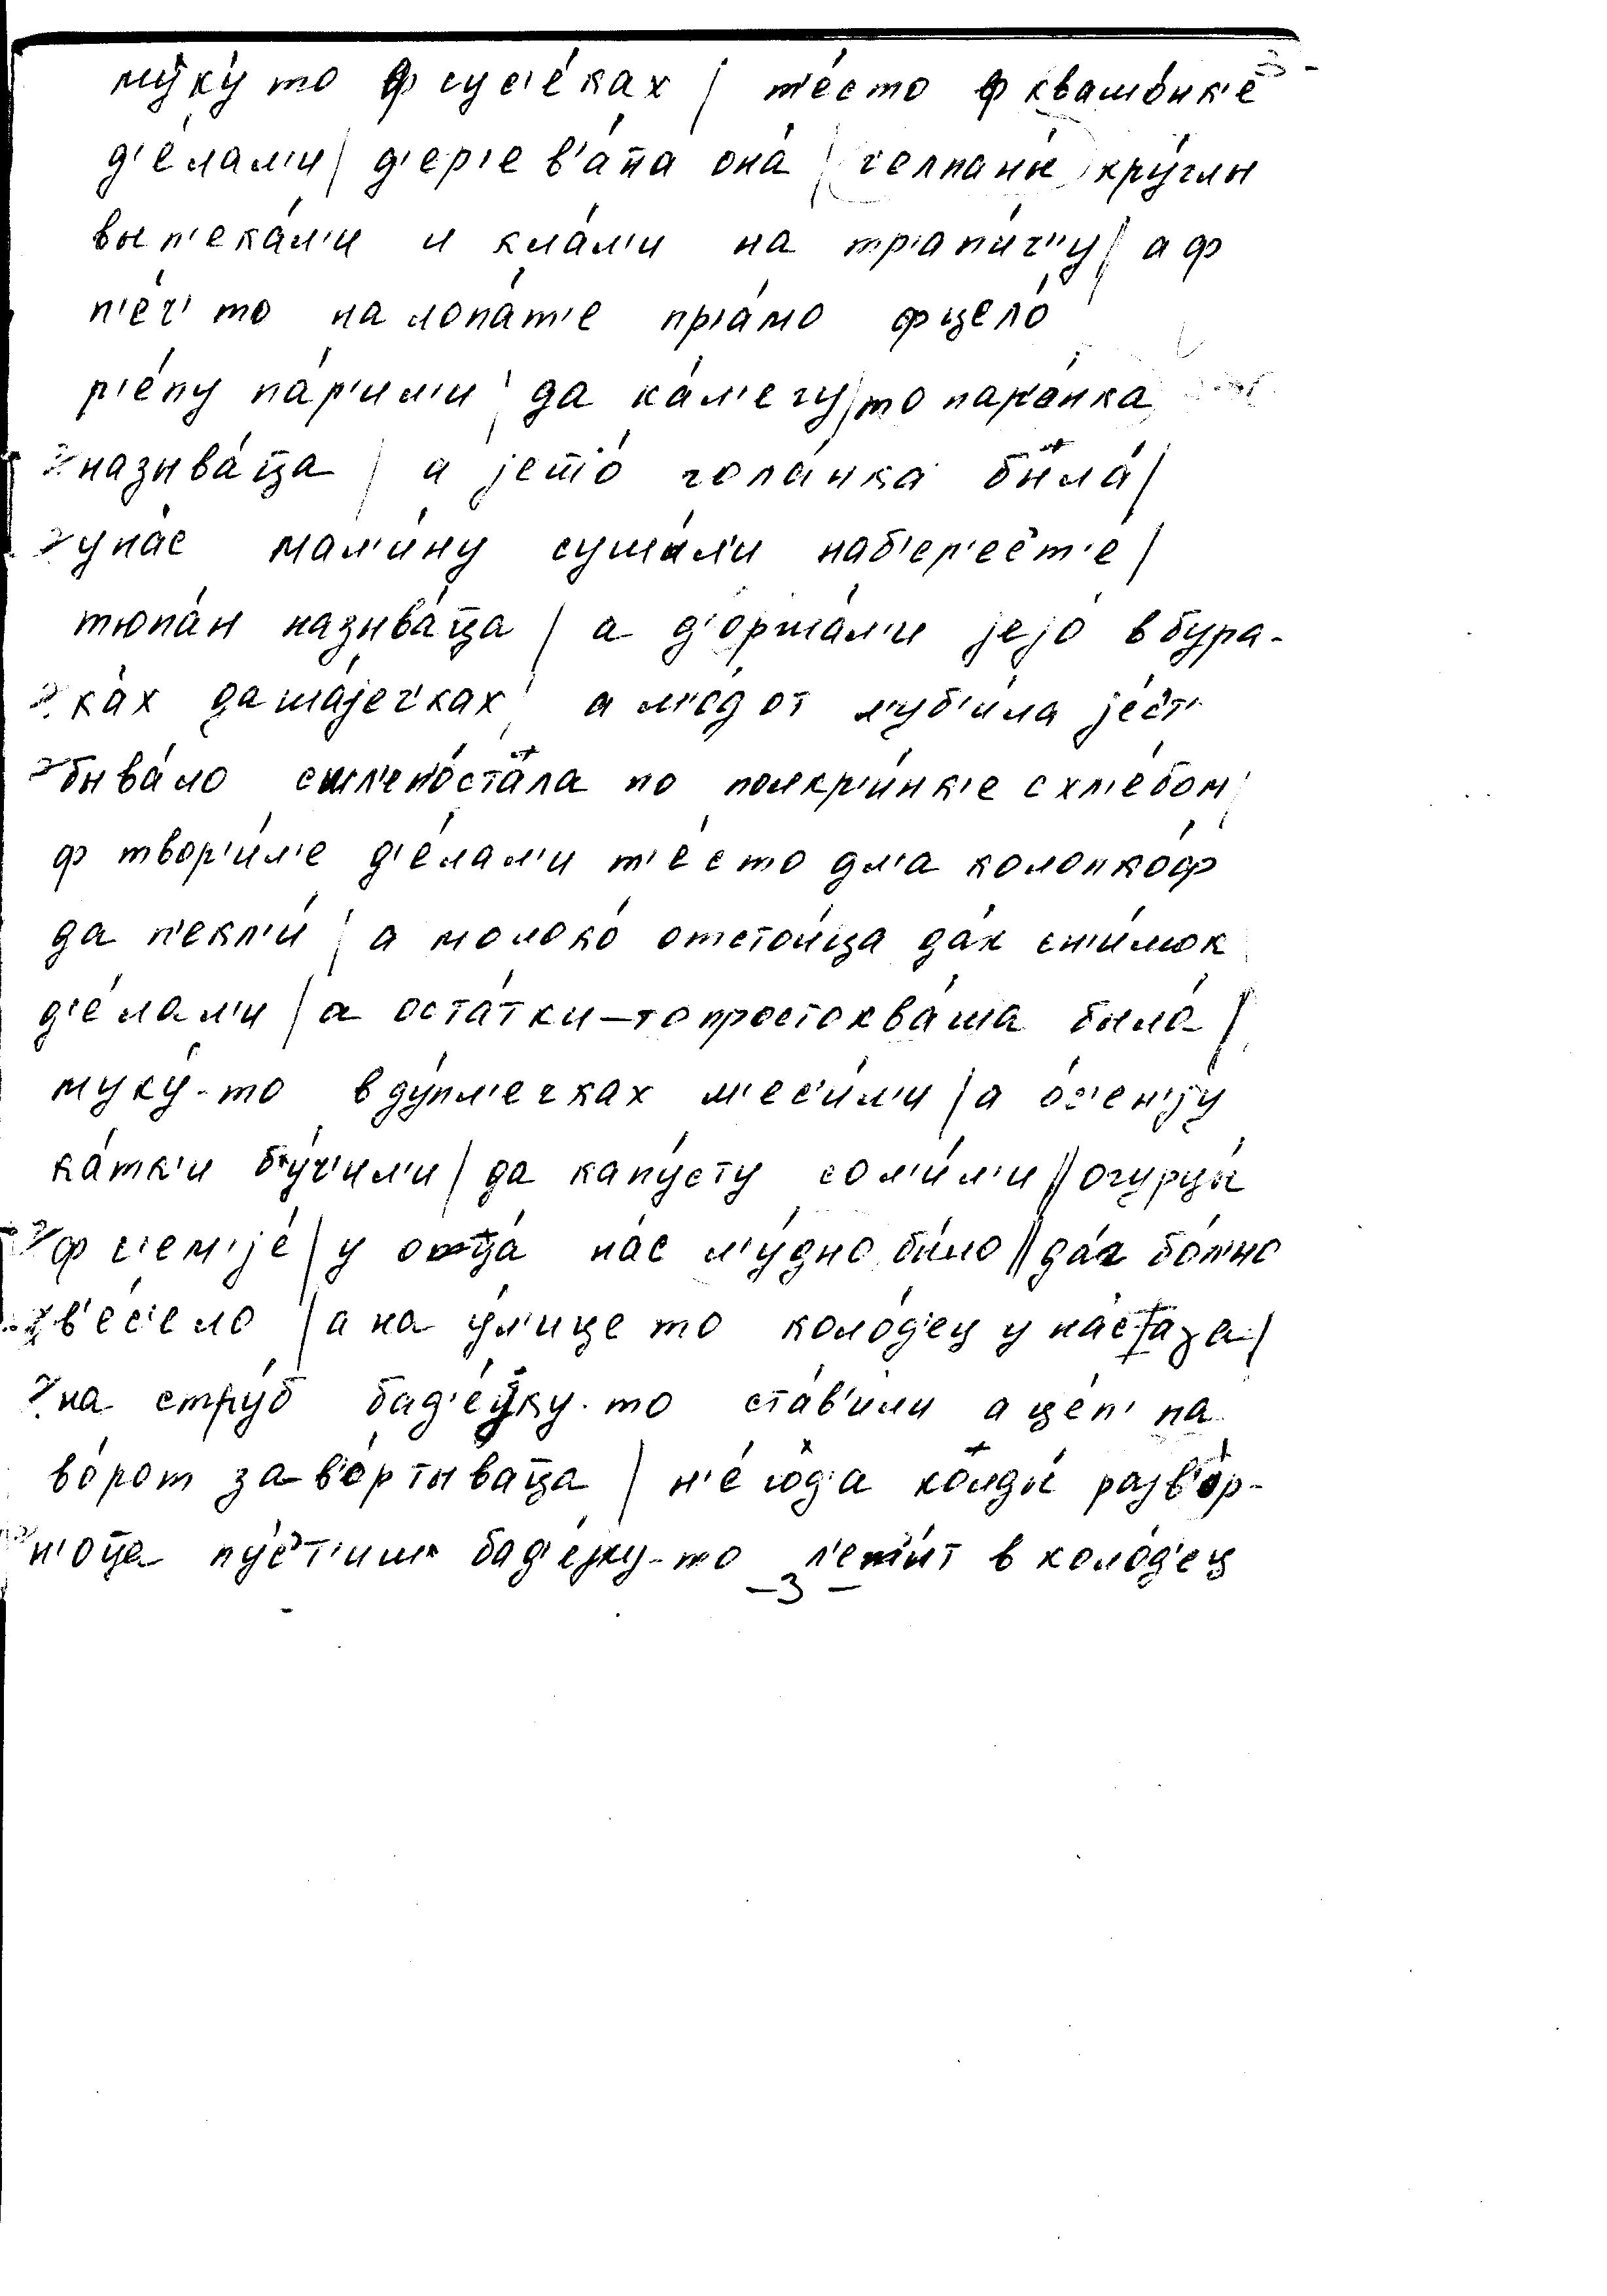 му́ку́ то ф сус'е́ках / т'е́сто ф квашо́нк'е
д'е́лал'и / д'ер'ев'а́на она́ / ч'елпаны́ кру́глы
вып'ека́л'и и кла́л'и на тр'апи́ч'у / а ф
п'е́ч' то на лопа́т'е пр'а́мо ф цело́
р'е́пу па́р'ил'и / да ка́л'егу / то пар'о́нка
называ́ц̄а / а јето́ гола́нка была́ /
у на́с мал'и́ну суши́л'и на б'ер'ес'т'е /
тюпа́н называ́ц̄а / а д'оржа́л'и јејо́ в бура-
ка́х да ма́јеч'ках / а л'у́б'и́ла је́с'т'
быва́ло по полкр'и́нк'е с хл'е́бом /
ф твор'и́л'е д'е́лал'и т'е́сто дл'а колопко́ф
да п'екл'и́ / а молоко́ отстои́ца да́к сн'и́мок
д'е́лал'и / а оста́тки-то простоква́ша была́ /
муку́-то в ду́пл'ечках м'ес'и́л'и / а о́с'ен'ју
ка́тк'и бу́ч'ил'и / да капу́сту сол'и́л'и // огурцы́
ф с'ем'је́ / у отца́ на́с л'у́дно бы́ло // да́к бо́л'но
в'е́с'ело / а на у́л'ице то коло́д'ец у на́с
на стру́б бад'е́јку-то ста́в'или а це́п' на
во́рот зав'о́ртыва́ц̄а / н'е́ колды́ разв'о́р-
н'оц̄а пу́с'т'иш бад'е́јку-то л'ети́т в коло́д'ец
-3-